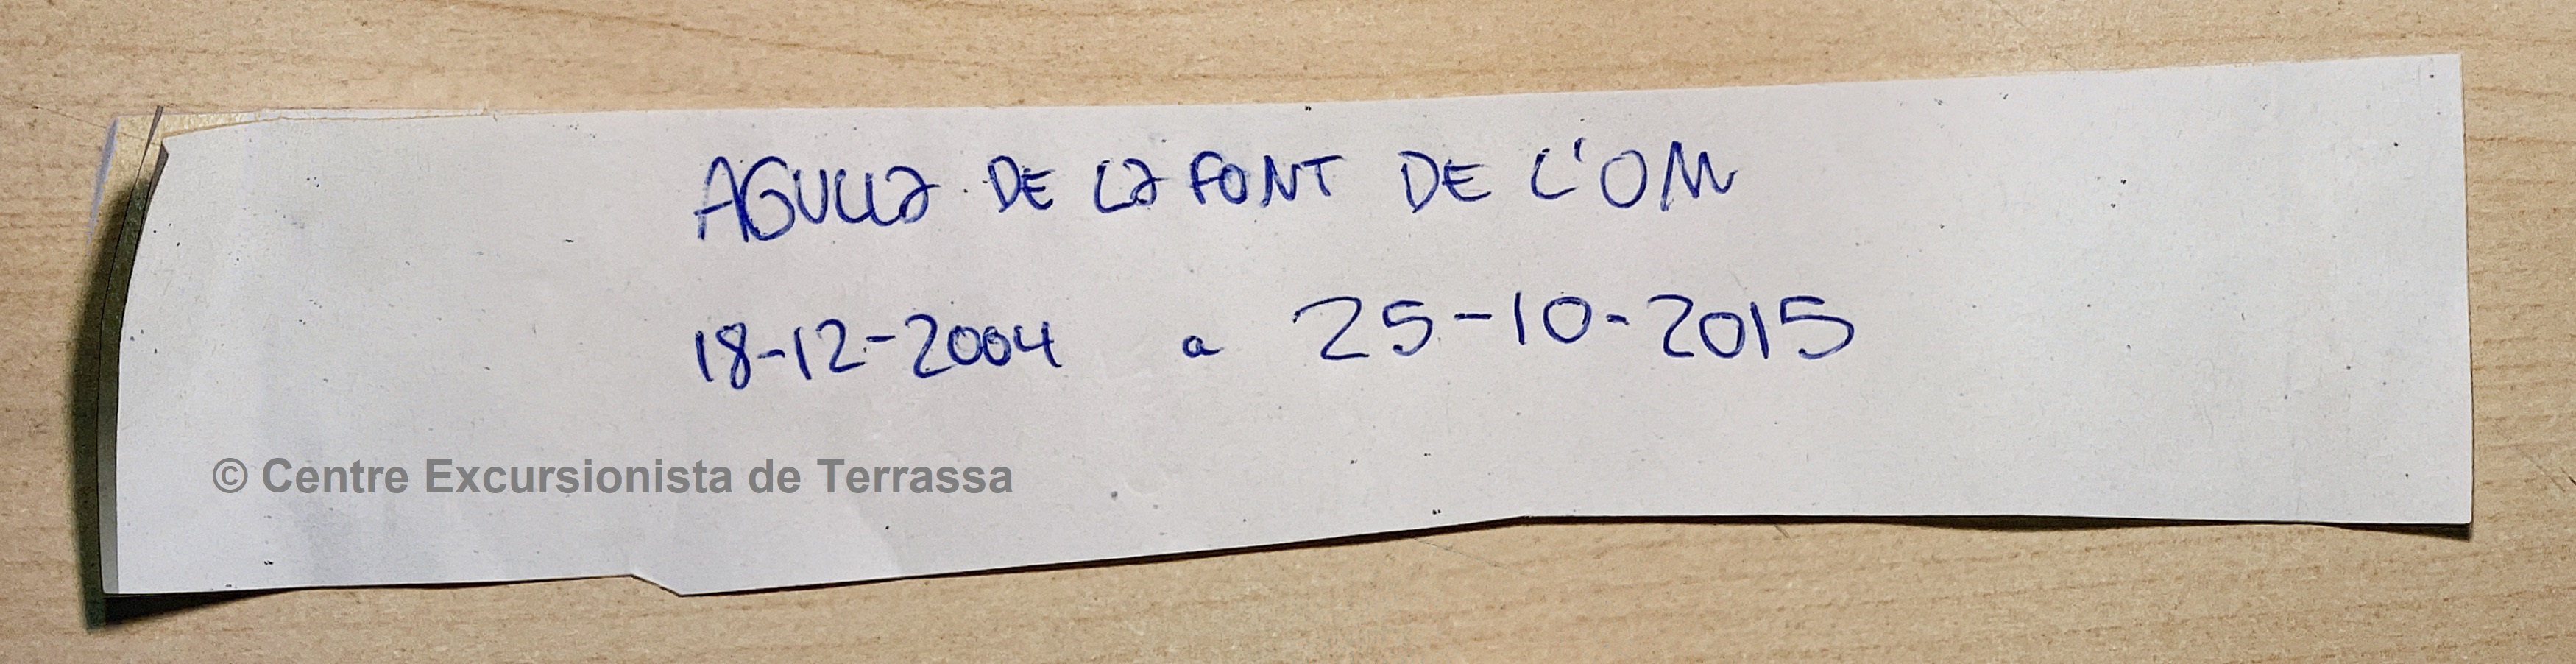 AGULLA DE LA FONT DE L'OM
18-12-2004 a 25-10-2015
© Centre Excursionista de Terrassa